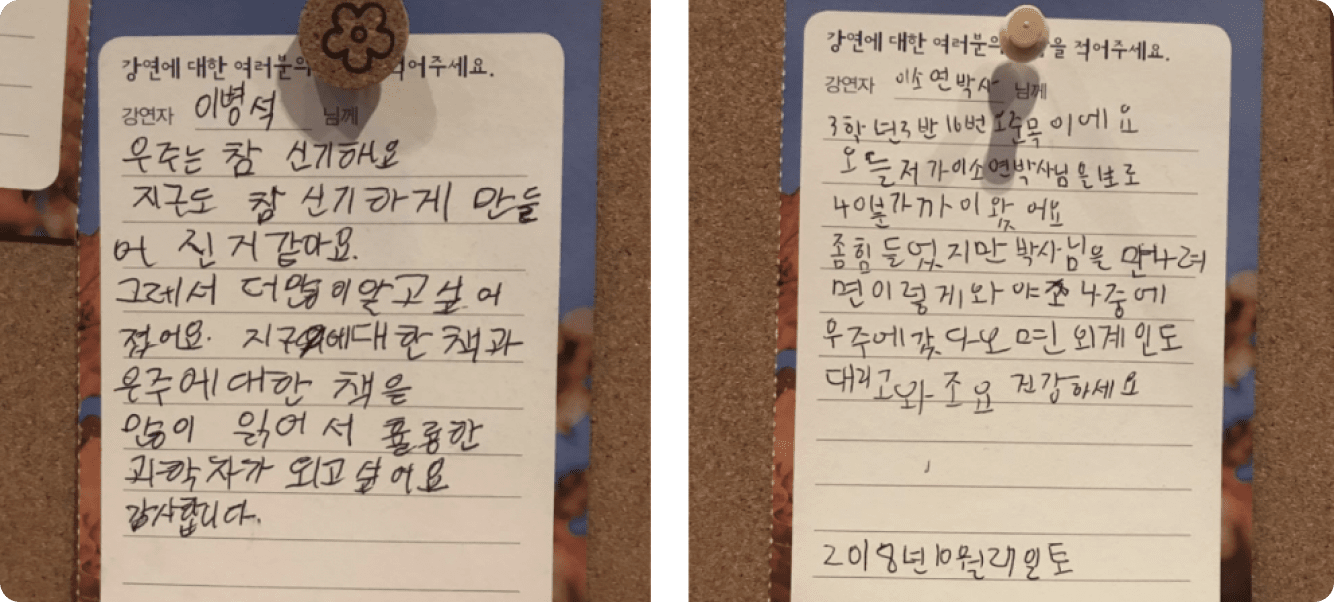 강연에 대한 여러분의 적어주세요.
강연자 이병석 님께
우주는 참 신기해요
지구도 참 신기하게 만들
어 진 거 같아요.
그래서 더 많이 알고 싶어
젔어요. 지구에대한 책과
우주에대한 책을
많이 읽어서 훌륭한
과학자가 되고 싶어요
감사합니다.
강연에 대한 여러분의 을 적어주세요.
강연자 이소연박사 님께
3학년3반 16번 이에요
오늘저가이소연박사님을보로
40분가까이왔어요
좀힘들었지만박사님을만나려
면이렇게와야조 나중에
우주에갔다오면외계인도
대리고와조요 건강하세요
2018년10월 일토